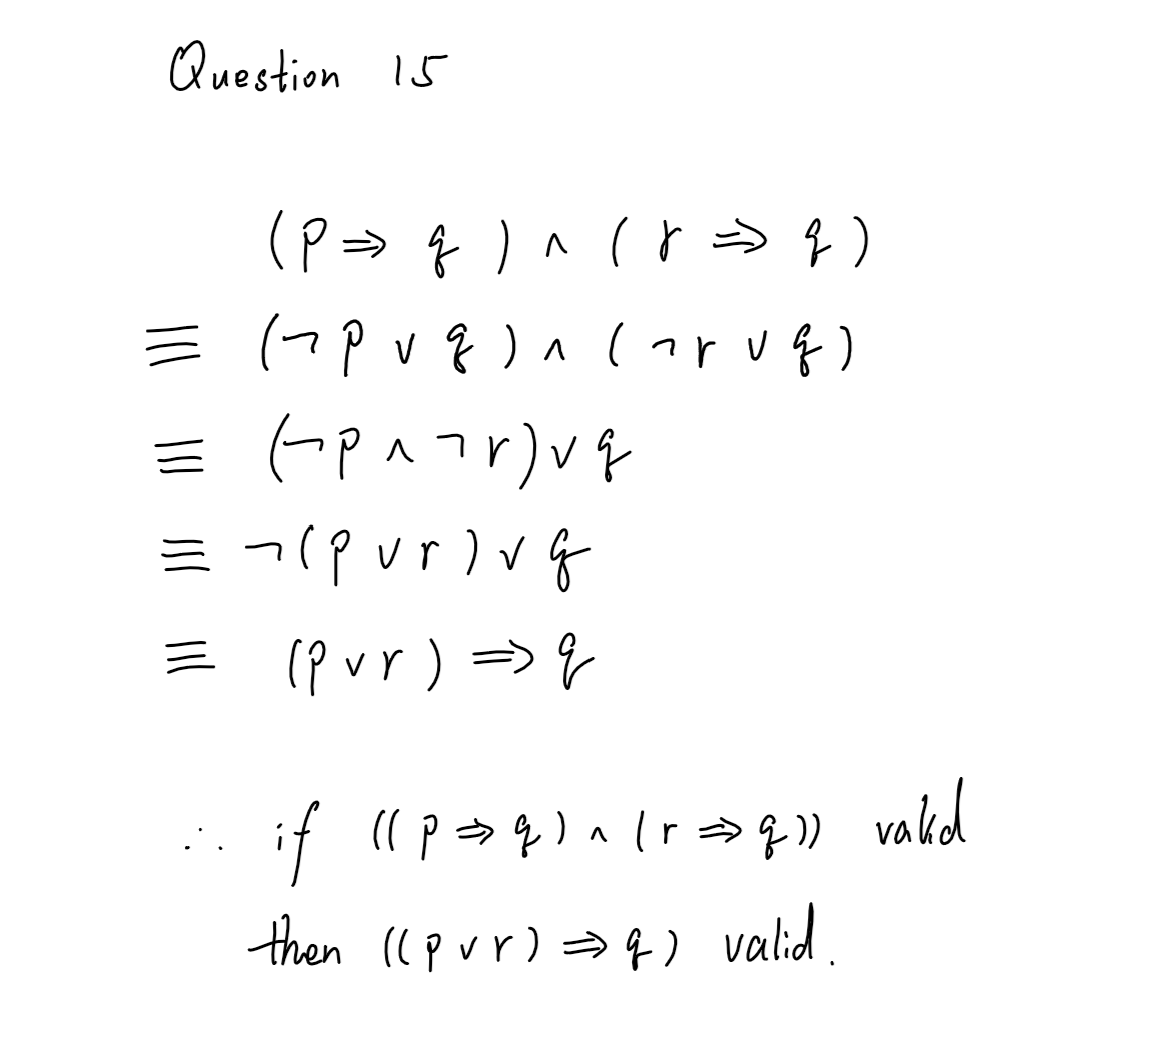 Question 15
(p ⇒ q) ∧ (r ⇒ q)
≡ (¬p ∨ q) ∧ (¬r ∨ q)
≡ (¬p ∧ ¬r) ∨ q
≡ ¬(p ∨ r) ∨ q
≡ (p ∨ r) ⇒ q
∴ if ((p ⇒ q) ∧ (r ⇒ q)) valid
then ((p ∨ r) ⇒ q) valid.